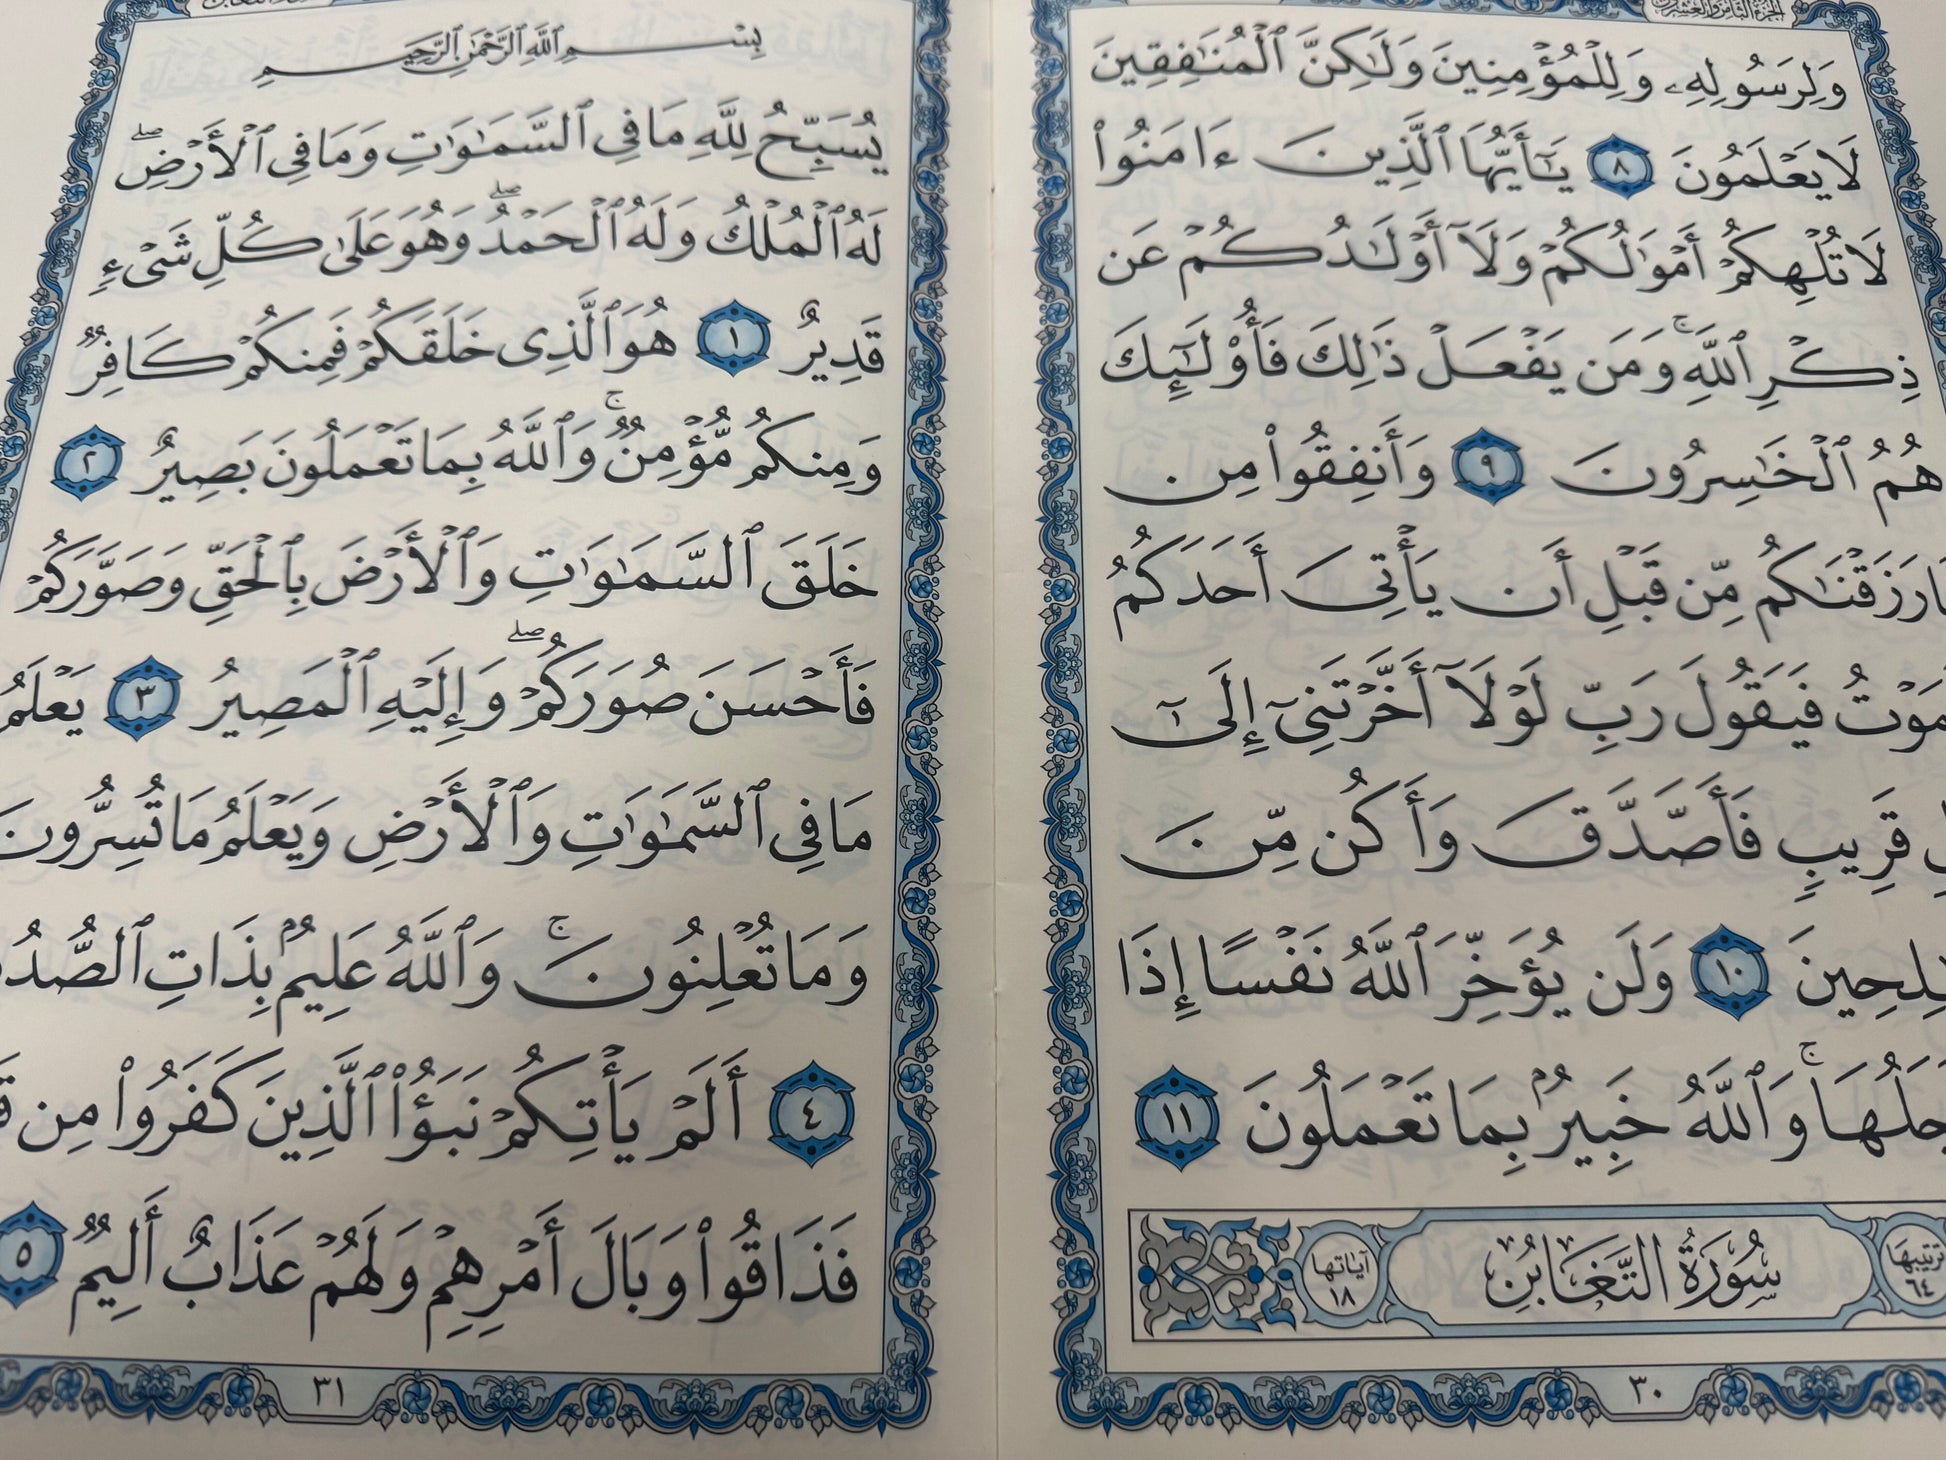 الجزء الثامن والعشرون
وَلِرَسُولِهِۦ وَلِلْمُؤْمِنِينَ وَلَٰكِنَّ ٱلْمُنَٰفِقِينَ
لَا يَعْلَمُونَ ٨ يَٰٓأَيُّهَا ٱلَّذِينَ ءَامَنُوا۟
لَا تُلْهِكُمْ أَمْوَٰلُكُمْ وَلَآ أَوْلَٰدُكُمْ عَن
ذِكْرِ ٱللَّهِ ۚ وَمَن يَفْعَلْ ذَٰلِكَ فَأُو۟لَٰٓئِكَ
هُمُ ٱلْخَٰسِرُونَ ٩ وَأَنفِقُوا۟ مِن
رَزَقْنَٰكُم مِّن قَبْلِ أَن يَأْتِىَ أَحَدَكُمُ
فَيَقُولَ رَبِّ لَوْلَآ أَخَّرْتَنِىٓ إِلَىٰٓ
قَرِيبٍ فَأَصَّدَّقَ وَأَكُن مِّنَ
١٠ وَلَن يُؤَخِّرَ ٱللَّهُ نَفْسًا إِذَا
وَٱللَّهُ خَبِيرٌۢ بِمَا تَعْمَلُونَ ١١
ترتيبها ٦٤ سُورَةُ التَّغَابُنِ آياتها ١٨
٣٠
بِسْمِ ٱللَّهِ ٱلرَّحْمَٰنِ ٱلرَّحِيمِ
يُسَبِّحُ لِلَّهِ مَا فِى ٱلسَّمَٰوَٰتِ وَمَا فِى ٱلْأَرْضِ ۖ
لَهُ ٱلْمُلْكُ وَلَهُ ٱلْحَمْدُ ۖ وَهُوَ عَلَىٰ كُلِّ شَىْءٍ
قَدِيرٌ ١ هُوَ ٱلَّذِى خَلَقَكُمْ فَمِنكُمْ كَافِرٌ
وَمِنكُم مُّؤْمِنٌ ۚ وَٱللَّهُ بِمَا تَعْمَلُونَ بَصِيرٌ ٢
خَلَقَ ٱلسَّمَٰوَٰتِ وَٱلْأَرْضَ بِٱلْحَقِّ وَصَوَّرَكُمْ
فَأَحْسَنَ صُوَرَكُمْ ۖ وَإِلَيْهِ ٱلْمَصِيرُ ٣ يَعْلَمُ
مَا فِى ٱلسَّمَٰوَٰتِ وَٱلْأَرْضِ وَيَعْلَمُ مَا تُسِرُّونَ
وَمَا تُعْلِنُونَ ۚ وَٱللَّهُ عَلِيمٌۢ بِذَاتِ
٤ أَلَمْ يَأْتِكُمْ نَبَؤُا۟ ٱلَّذِينَ كَفَرُوا۟ مِن
فَذَاقُوا۟ وَبَالَ أَمْرِهِمْ وَلَهُمْ عَذَابٌ أَلِيمٌ ٥
٣١